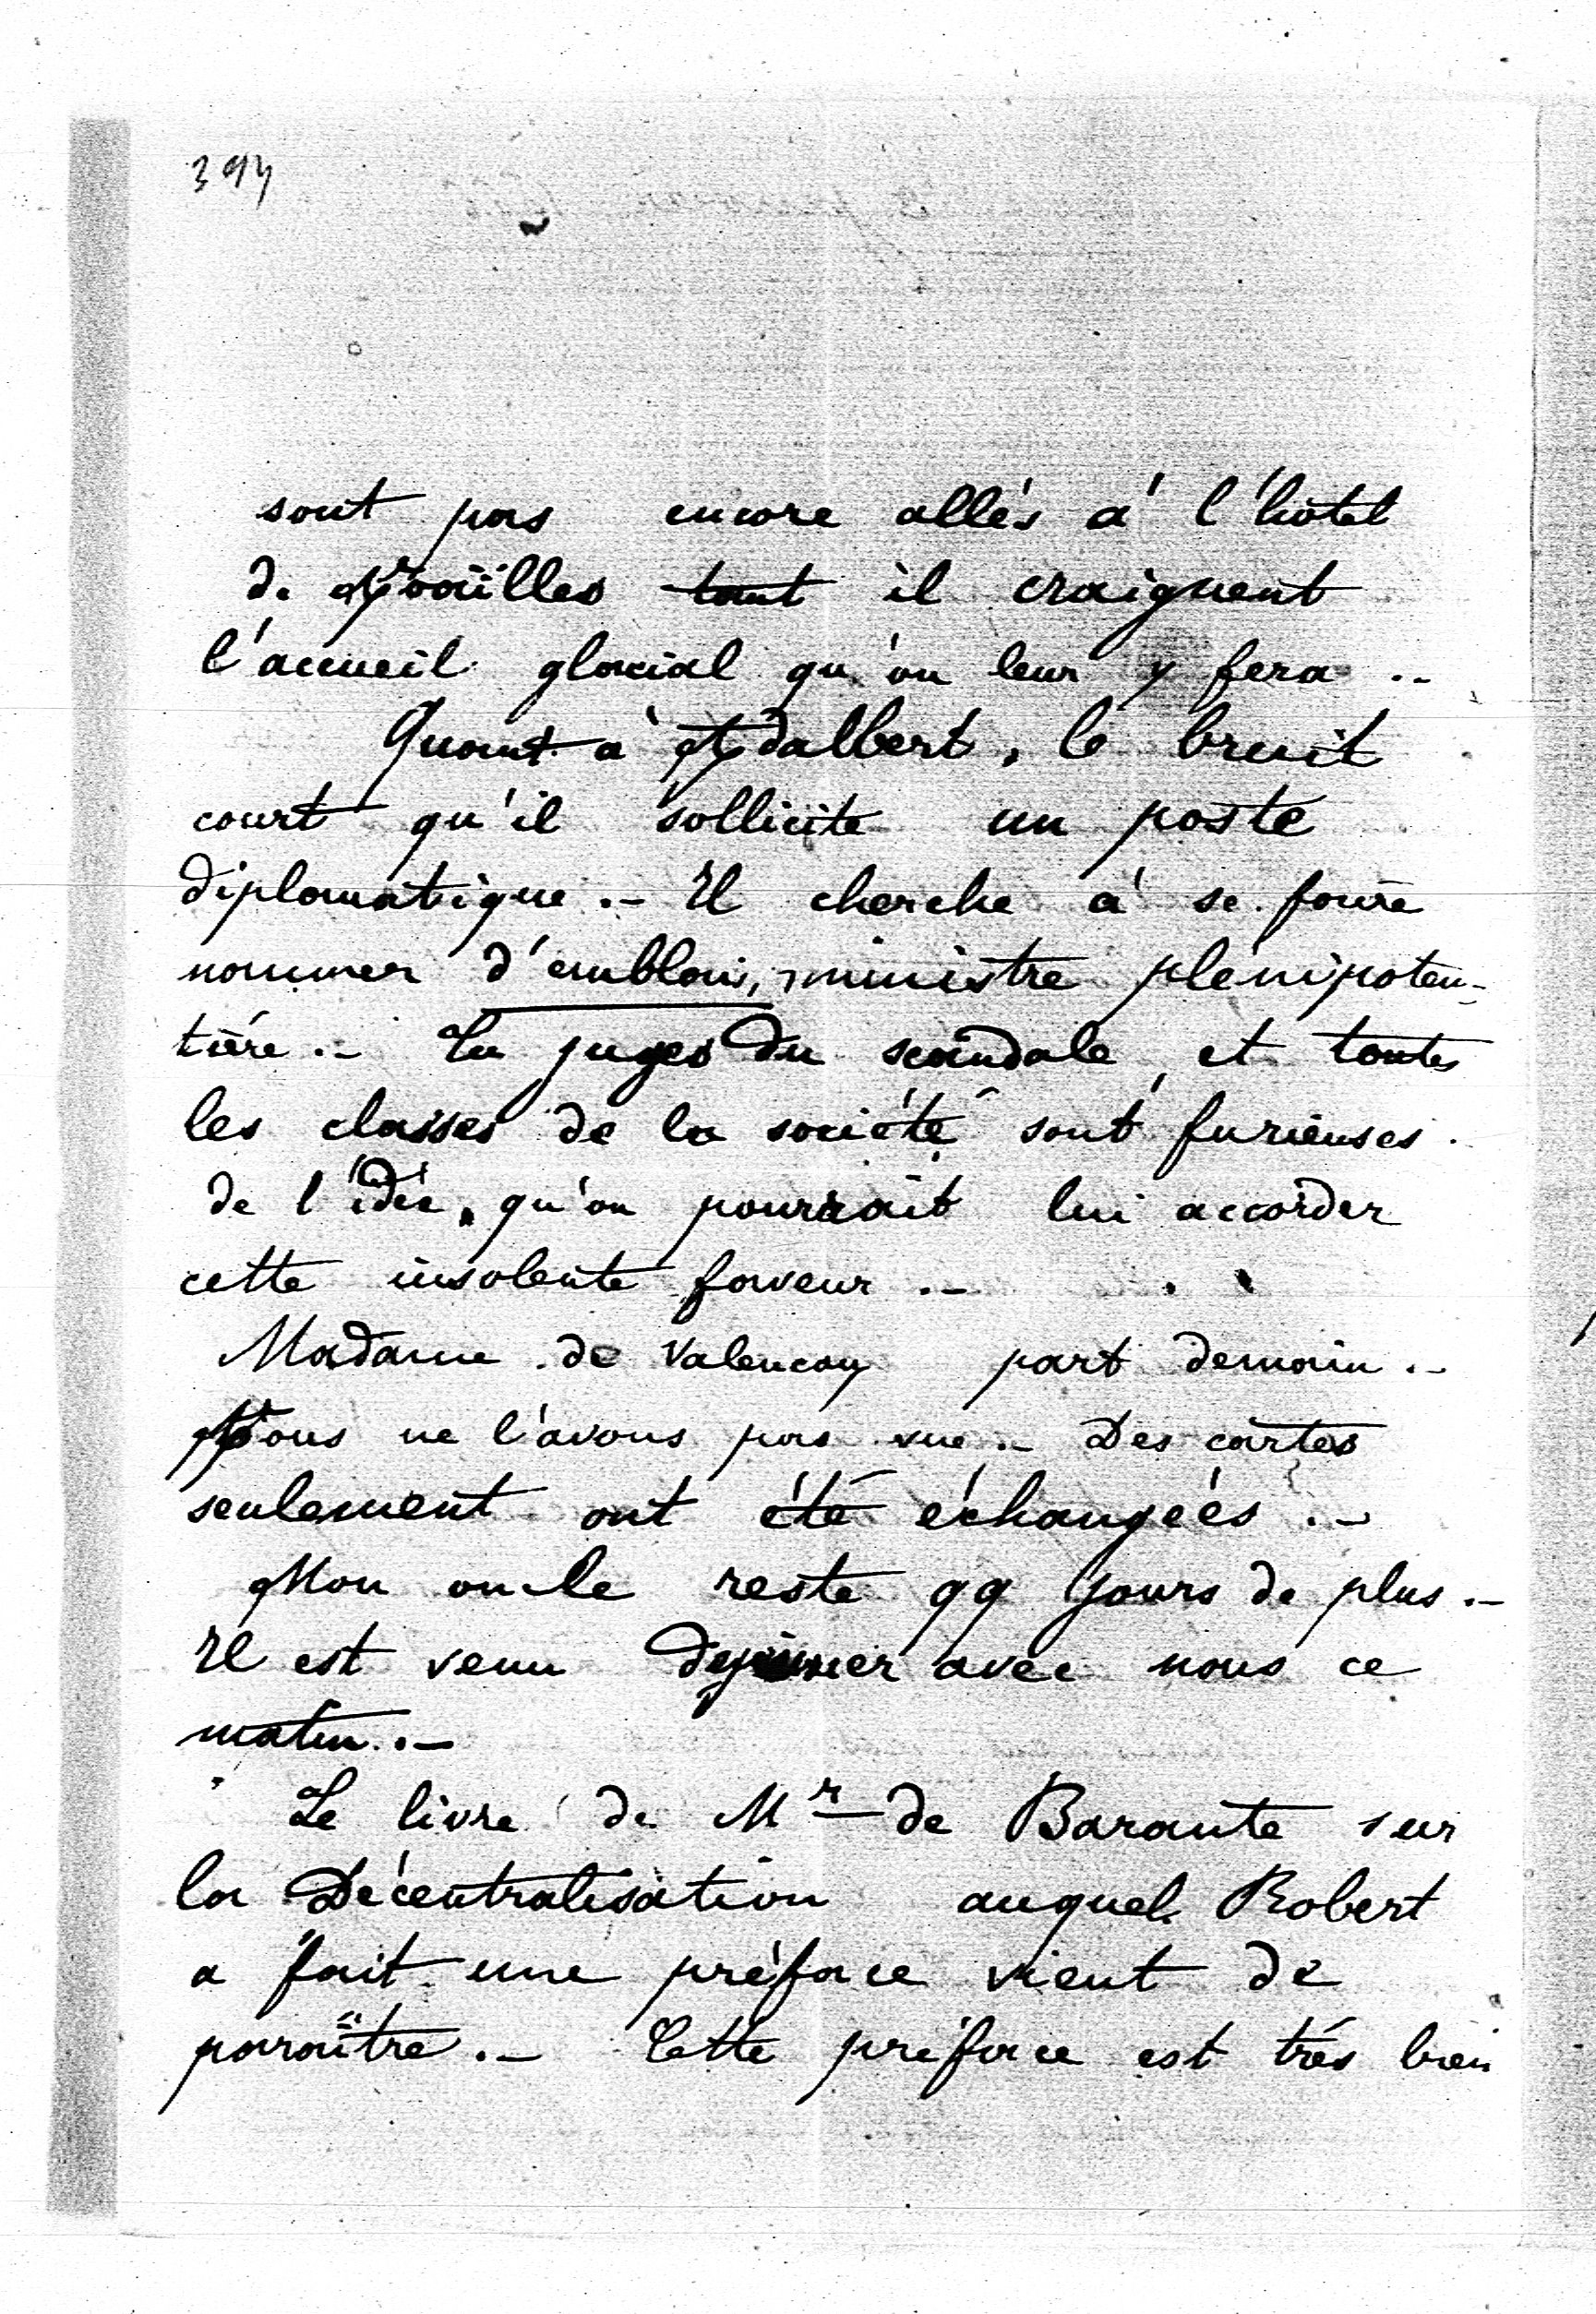 394
sont pas encore allés à l'hôtel
de Noaïlles tant il craignent
l'accueil glacial qu'on leur y fera .-
Quant à Adalbert, le bruit
court qu'il sollicite un poste
diplomatique .- Il cherche à se faire
nommer d'emblais, ministre plénipoten-
tière .- Tu juges du scandale, et toutes
les classes de la société sont furieuses
de l'idée, qu'on pourrait lui accorder
cette insolente faveur .-
Madame de Valencay part demain .-
Nous ne l'avons pas vue .- Des cartes
seulement ont été échangées .-
Mon oncle reste qq jours de plus .-
Il est venu dejeuner avec nous ce
matin .-
Le livre de Mr de Barante sur
la Décentralisation auquel Robert
a fait une préface vient de
paraître .- Cette préface est très bien